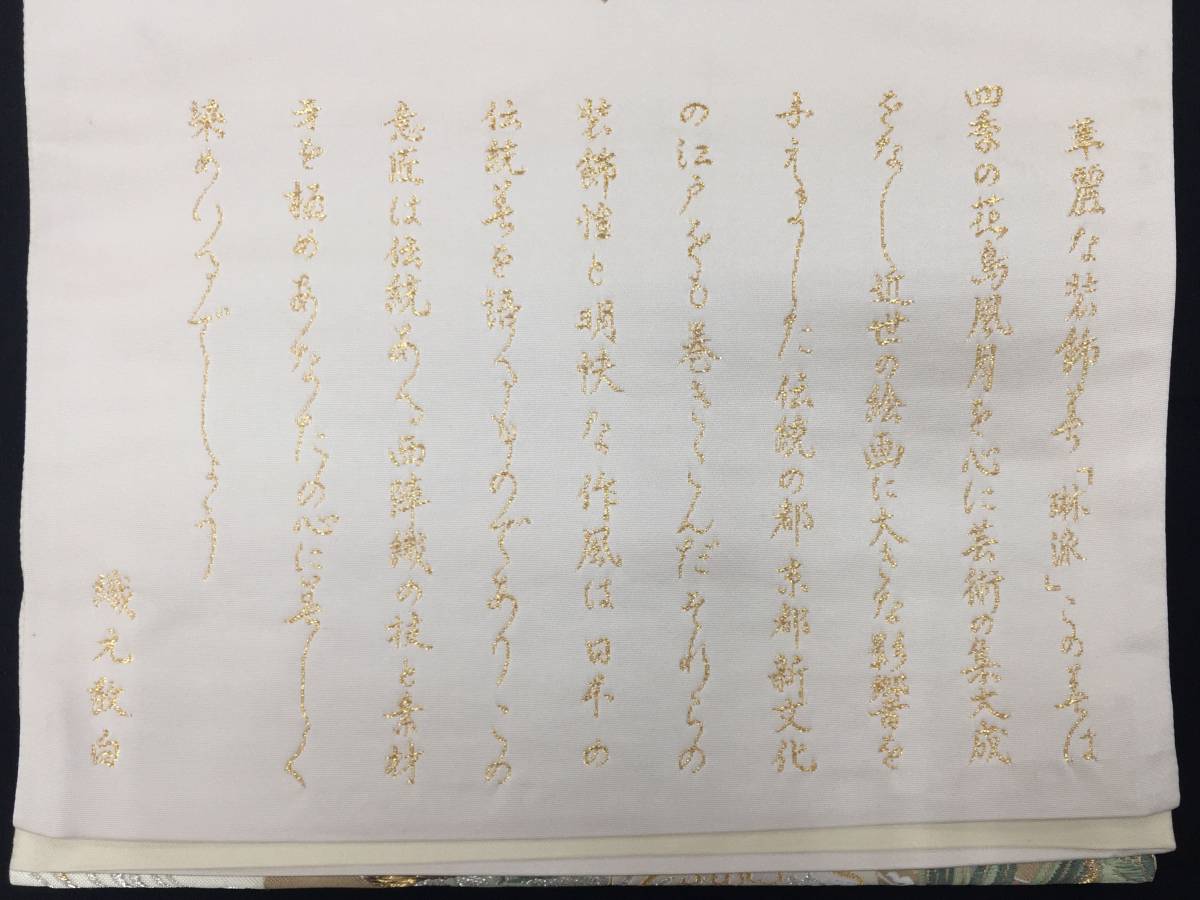 華麗な装飾美「琳派」この美は
四季の花鳥風月を心に芸術の集大成
をなし近世の絵画に大きな影響を
与えました伝統の都京都新文化
の江戸をも巻きこんだそれらの
装飾性と明快な作風は日本の
伝統美を語るものであり、この
意匠は伝統ある西陣織の技と素材
を極め の心に美しく
染めるでしょう
織元敬白